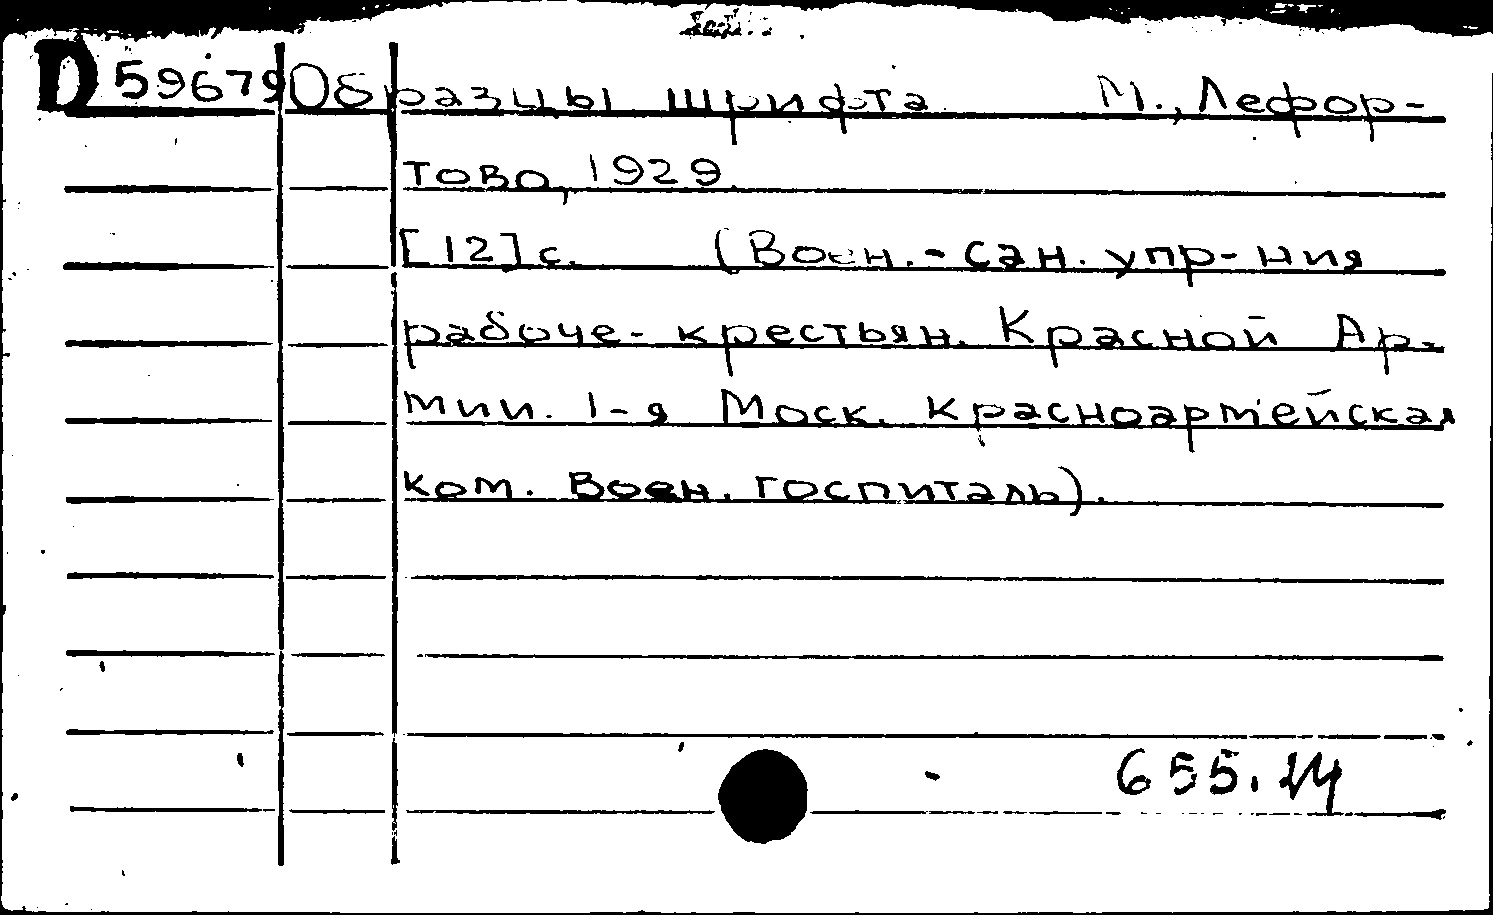 D 59679 Образцы шрифта М., Лефор-
тово, 1929.
[12] с. (Воен.-сан. упр-ния
рабоче-крестьян. Красной Ар-
мии. 1-я Моск. Красноармейская
ком. Воен. госпиталь).
655.24